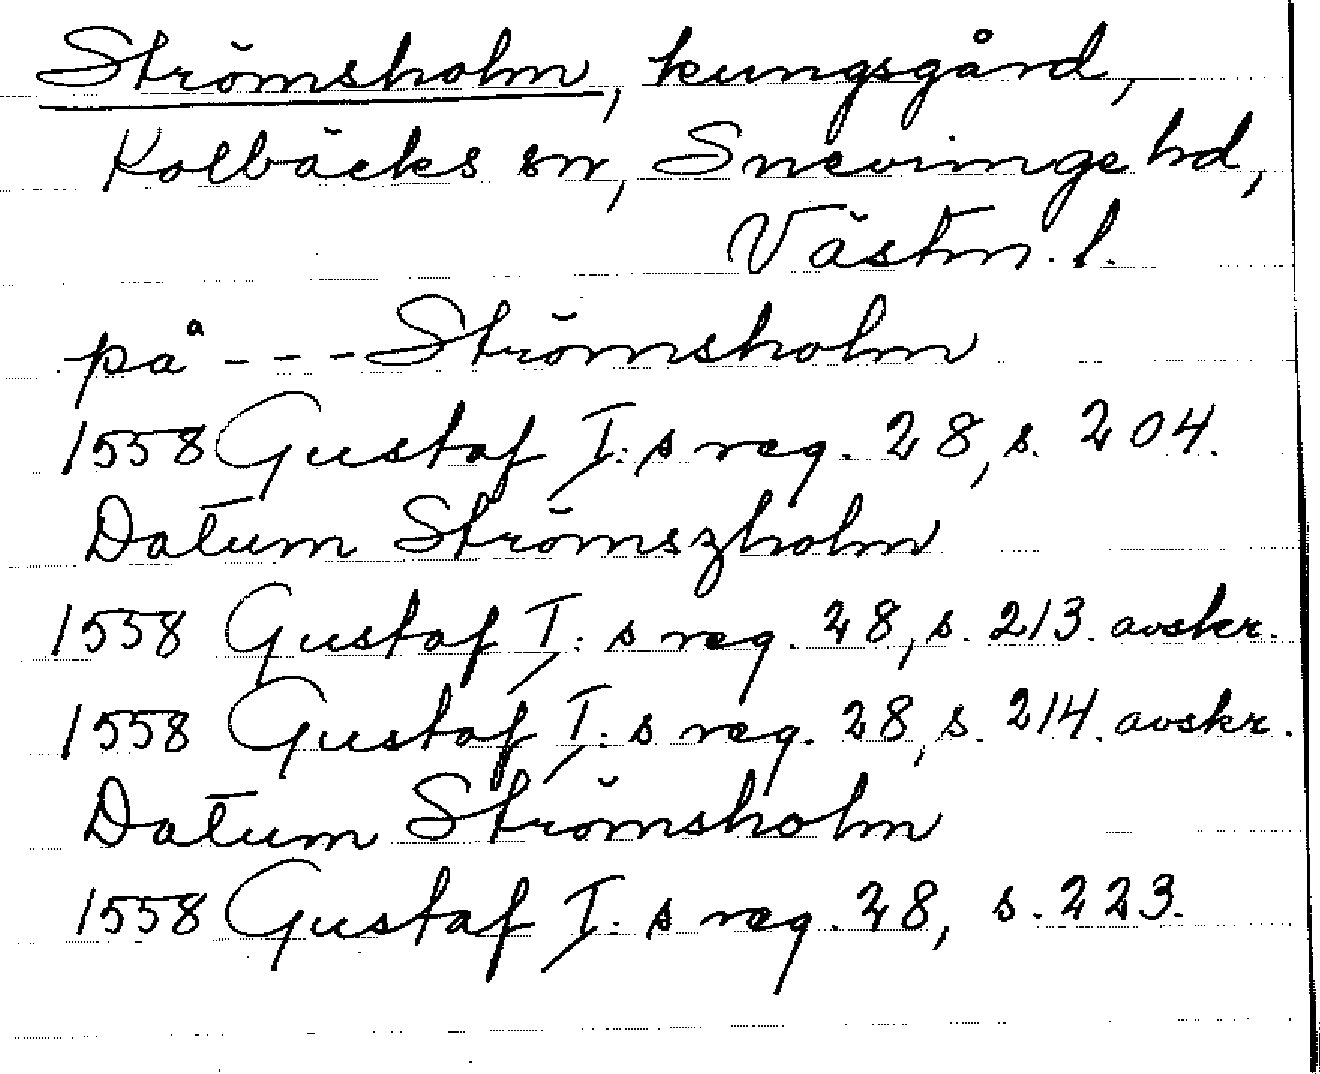 Strömsholm, kungsgård,
Kolbäcks sn, Snevringe hd,
Västm. l.
på - - - Strömsholm
1558 Gustaf I:s reg. 28, s. 204.
Datum Strömszholm
1558 Gustaf I:s reg. 28, s. 213. avskr.
1558 Gustaf I:s reg. 28, s. 214. avskr.
Datum Strömsholm
1558 Gustaf I:s reg. 28, s. 223.